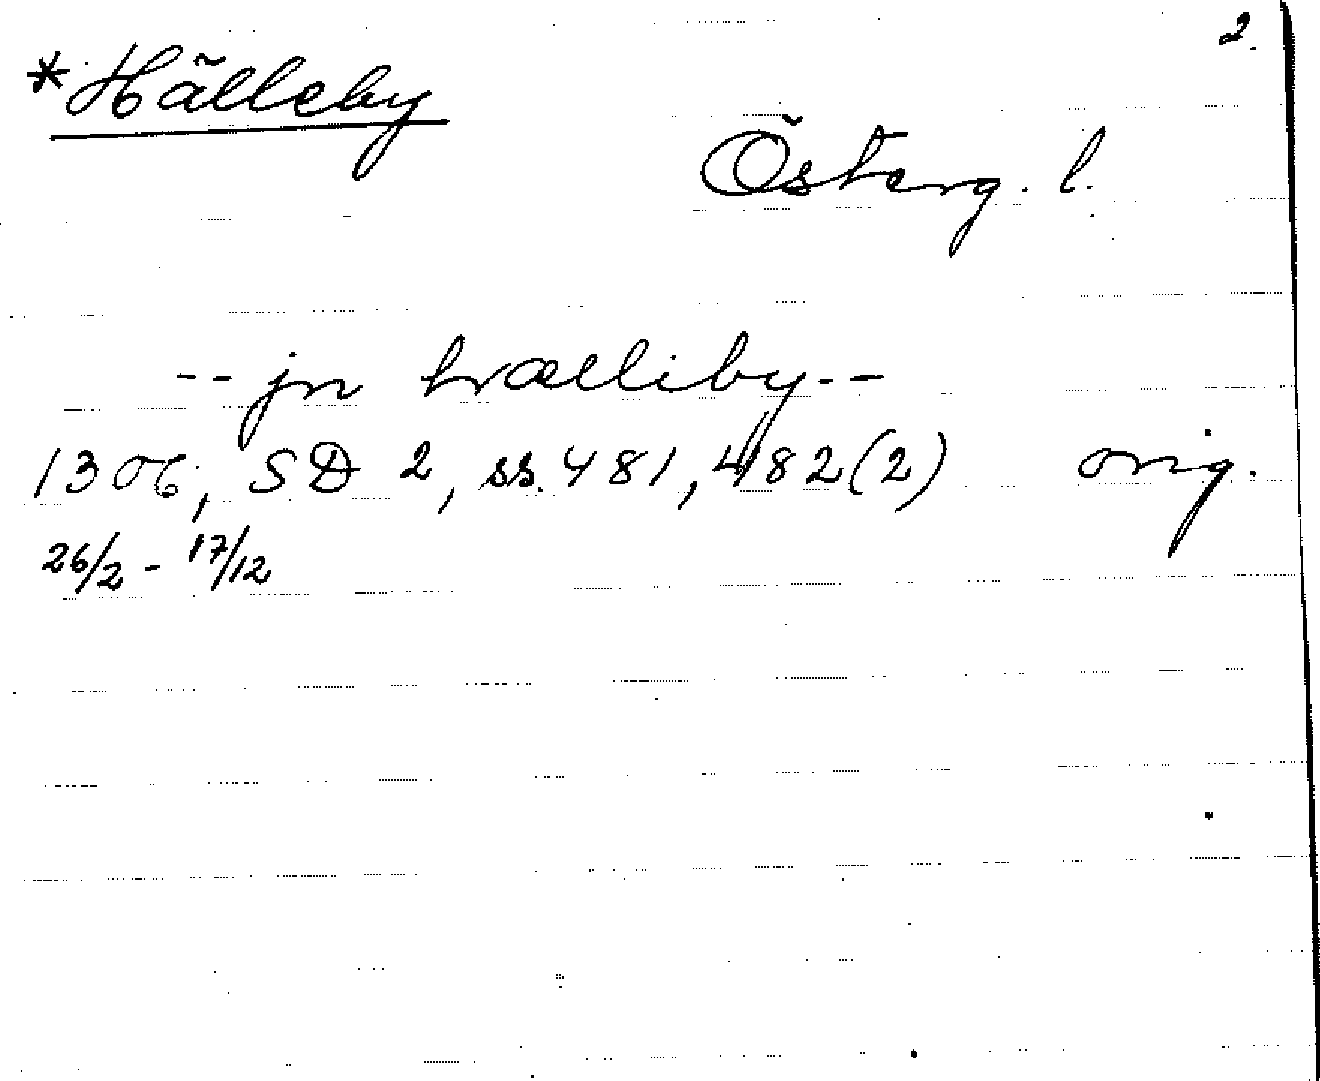 2.
*Hälleby
Österg. l.
-- jn hælliby --
1306, SD 2, ss. 481, 482 (2) orig.
26/2 - 17/12